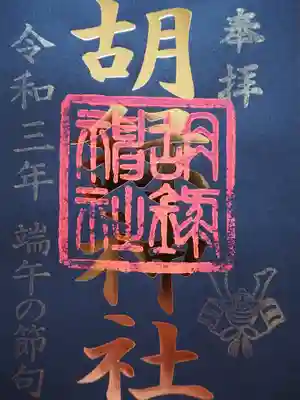 奉拝
胡録神社
胡録神社
令和三年 端午の節句